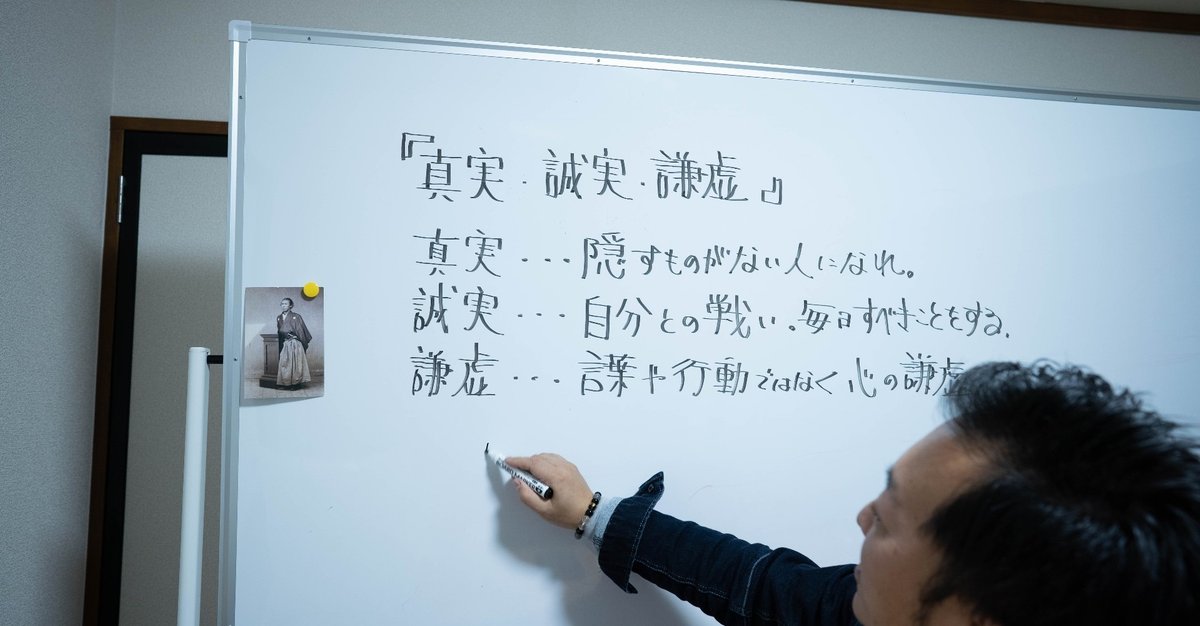 『真実・誠実・謙虚』
真実・・・隠すものがない人になれ。
誠実・・・自分との戦い。毎日すべきことをする。
謙虚・・・言葉や行動ではなく心の謙虚